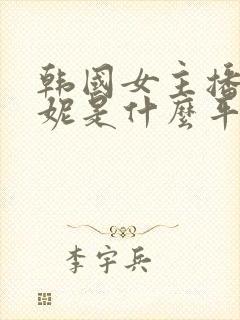 韩国女主播
妮是什麼平
李宇兵